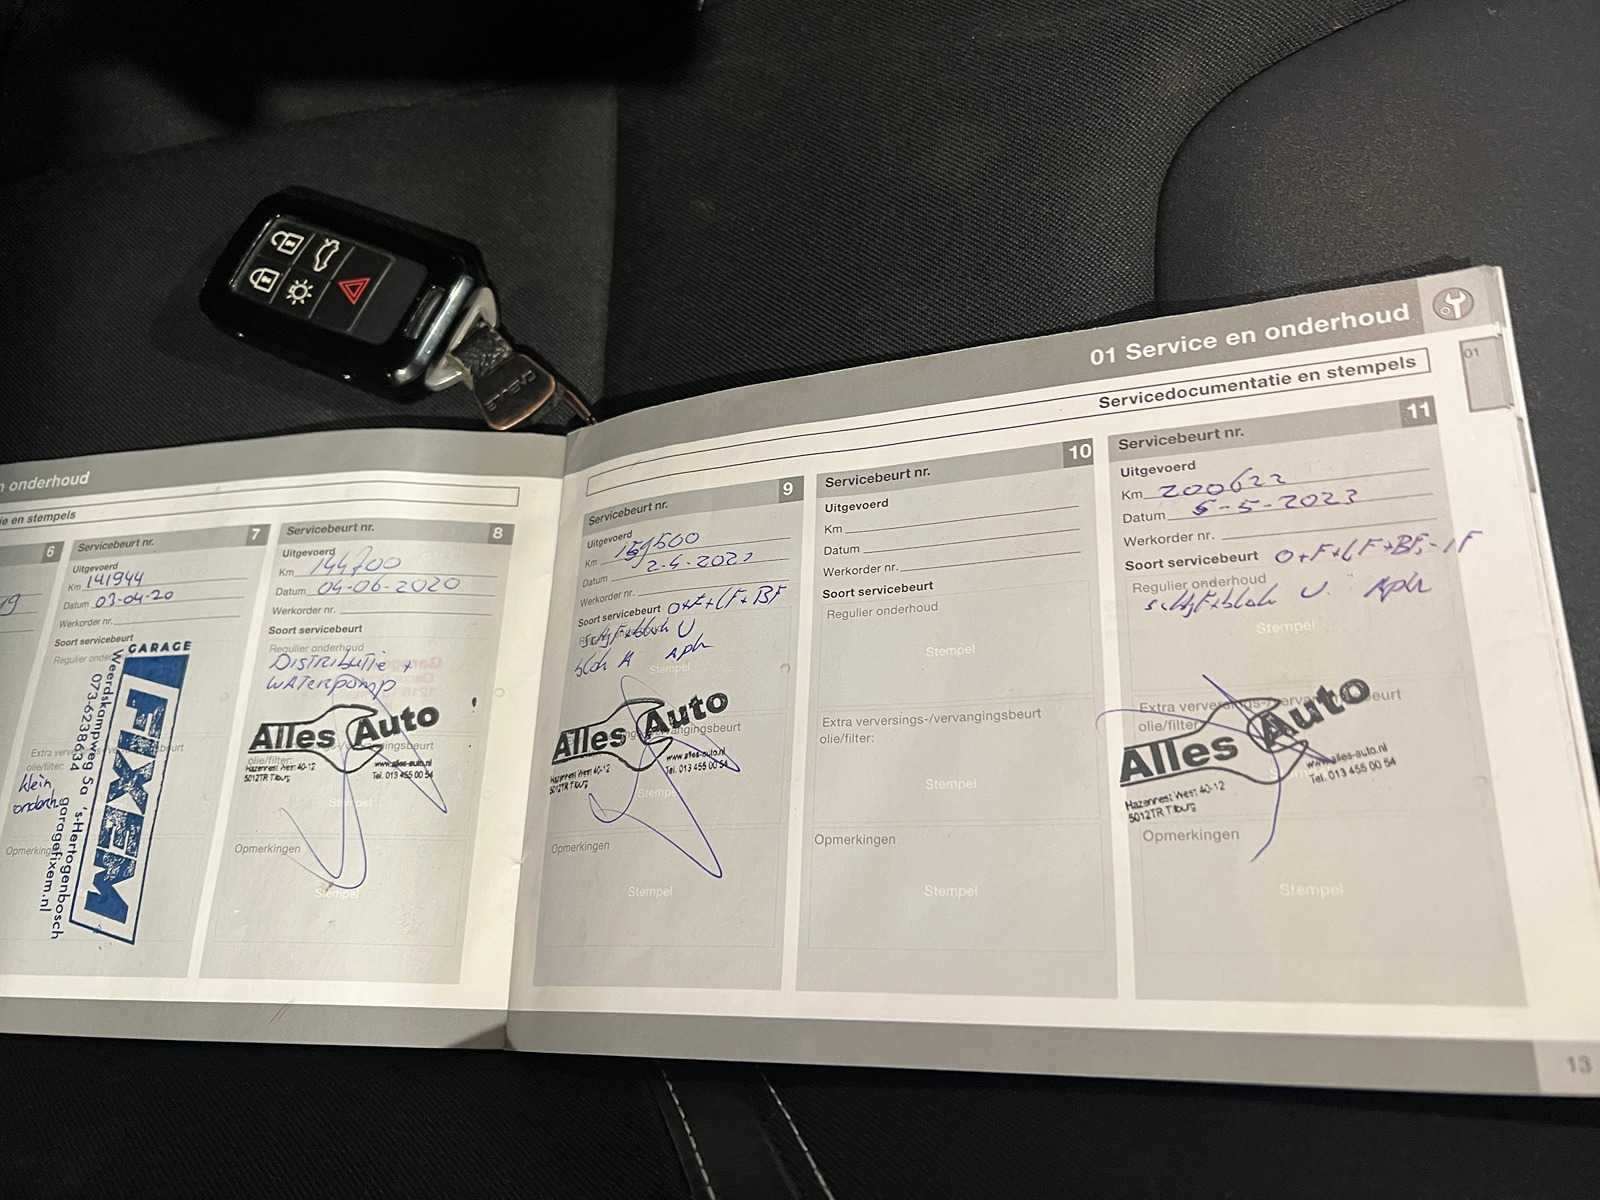 n onderhoud
ie en stempels
6
19
Servicebeurt nr. 7
Uitgevoerd
Km 141944
Datum 03-04-20
Werkorder nr.
Soort servicebeurt
Regulier onderh
GARAGE
FIXEM
Weerdskampweg 5a 's-Hertogenbosch
073-6238634 garagefixem.nl
Extra verver beurt
olie/filter:
klein
onderh
Opmerking
Servicebeurt nr. 8
Uitgevoerd
Km 144700
Datum 04-06-2020
Werkorder nr.
Soort servicebeurt
Regulier onderhoud
Distributie +
waterpomp
Alles Auto
-/vervangingsbeurt
olie/filter:
Hazenrest West 40-12
5012TR Tilburg
www.alles-auto.nl
Tel. 013 455 00 54
Opmerkingen
Stempel
01 Service en onderhoud
01
Servicedocumentatie en stempels
Servicebeurt nr. 9
Uitgevoerd
Km 159500
Datum 2-4-202
Werkorder nr.
Soort servicebeurt O+F+LF+BF
Stempel
Alles Auto
vangingsbeurt
Hazenrest West 40-12
5012TR Tilburg
www.alles-auto.nl
Tel. 013 455 00 54
Stemp
Opmerkingen
Stempel
Servicebeurt nr. 10
Uitgevoerd
Km
Datum
Werkorder nr.
Soort servicebeurt
Regulier onderhoud
Stempel
Extra verversings-/vervangingsbeurt
olie/filter:
Stempel
Opmerkingen
Stempel
Servicebeurt nr. 11
Uitgevoerd
Km 200622
Datum 5-5-2023
Werkorder nr.
Soort servicebeurt O+F+LF+BF
Regulier onderhoud
Stempel
Extra verversings-/vervangingsbeurt
olie/filter
Alles Auto
Hazenrest West 40-12
5012TR Tilburg
www.alles-auto.nl
Tel. 013 455 00 54
Opmerkingen
Stempel
13